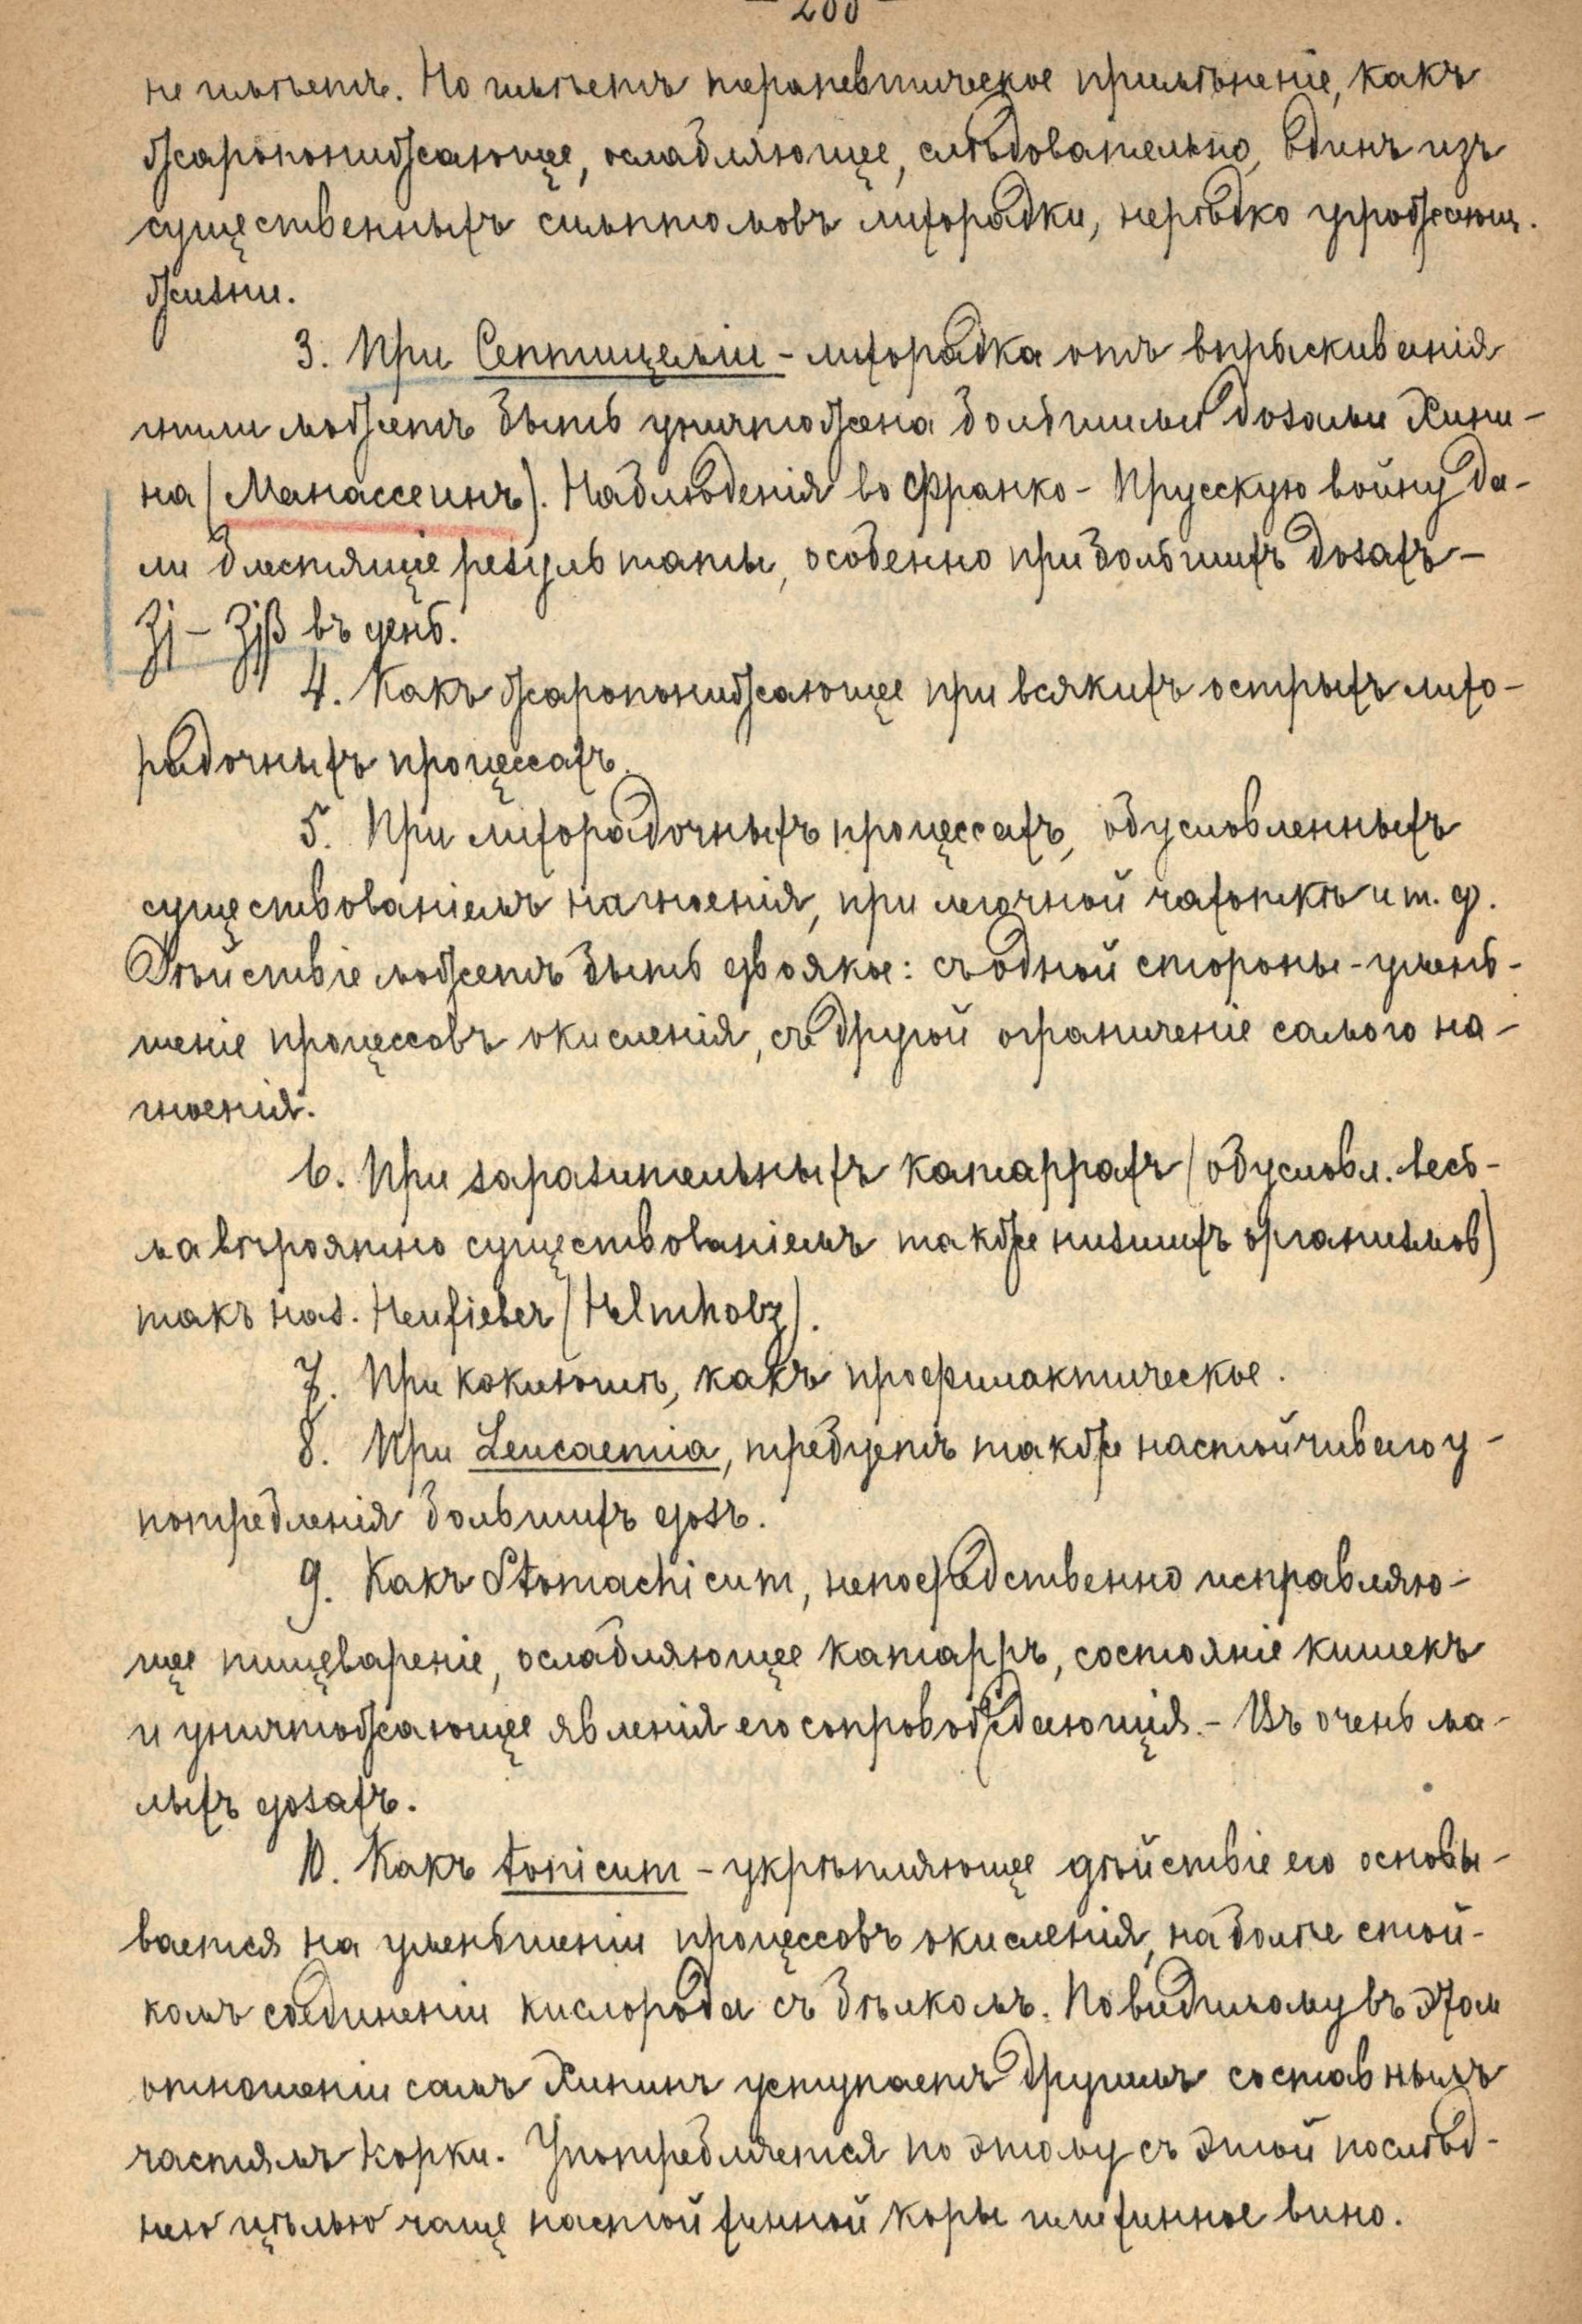 не имѣетъ. Но имѣетъ терапевтическое примѣненіе, какъ
жаропонижающее, ослабляющее, слѣдовательно, одинъ изъ
существенныхъ симптомовъ лихорадки, нерѣдко угрожающ.
жизни.
3. При Септицеміи - лихорадка отъ впрыскиванія
гнили можетъ быть уничтожена большими дозами Хини-
на (Манассеинъ). Наблюденія во Франко-Прусскую войну да-
ли блестящіе результаты, особенно при большихъ дозахъ -
ʒj - ʒjβ въ день.
4. Какъ жаропонижающее при всякихъ острыхъ лихо-
радочныхъ процессахъ.
5. При лихорадочныхъ процессахъ, обусловленныхъ
существованіемъ нагноенія, при легочной чахоткѣ и т. д.
Дѣйствіе можетъ быть двоякое: съ одной стороны - умень-
шеніе процессовъ окисленія, съ другой ограниченіе самого на-
гноенія.
6. При заразительныхъ катаррахъ (обусловл. весь-
ма вѣроятно существованіемъ также низшихъ организмов)
такъ наз. Heufieber (Helmholz).
7. При коклюшѣ, какъ профилактическое.
8. При Leucaemia, требуетъ также настойчиваго у-
потребленія большихъ дозъ.
9. Какъ Stomachicum, непосредственно исправляю-
щее пищевареніе, ослабляющее катарръ, состояніе кишекъ
и уничтожающее явленія его сопровождающія. - Въ очень ма-
лыхъ дозахъ.
10. Какъ tonicum - укрѣпляющее дѣйствіе его основы-
вается на уменьшеніи процессовъ окисленія, на болѣе стой-
комъ соединеніи кислорода съ бѣлкомъ. Повидимому въ этом
отношеніи самъ Хининъ уступаетъ другимъ составнымъ
частямъ корки. Употребляется по этому съ этой послѣд-
нею цѣлью чаще настой хинной коры или хинное вино.